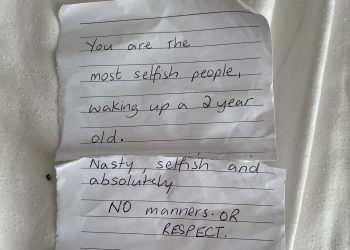 You are the
most selfish people,
waking up a 2 year
old.
Nasty, selfish and
absolutely
NO manners. OR
RESPECT.